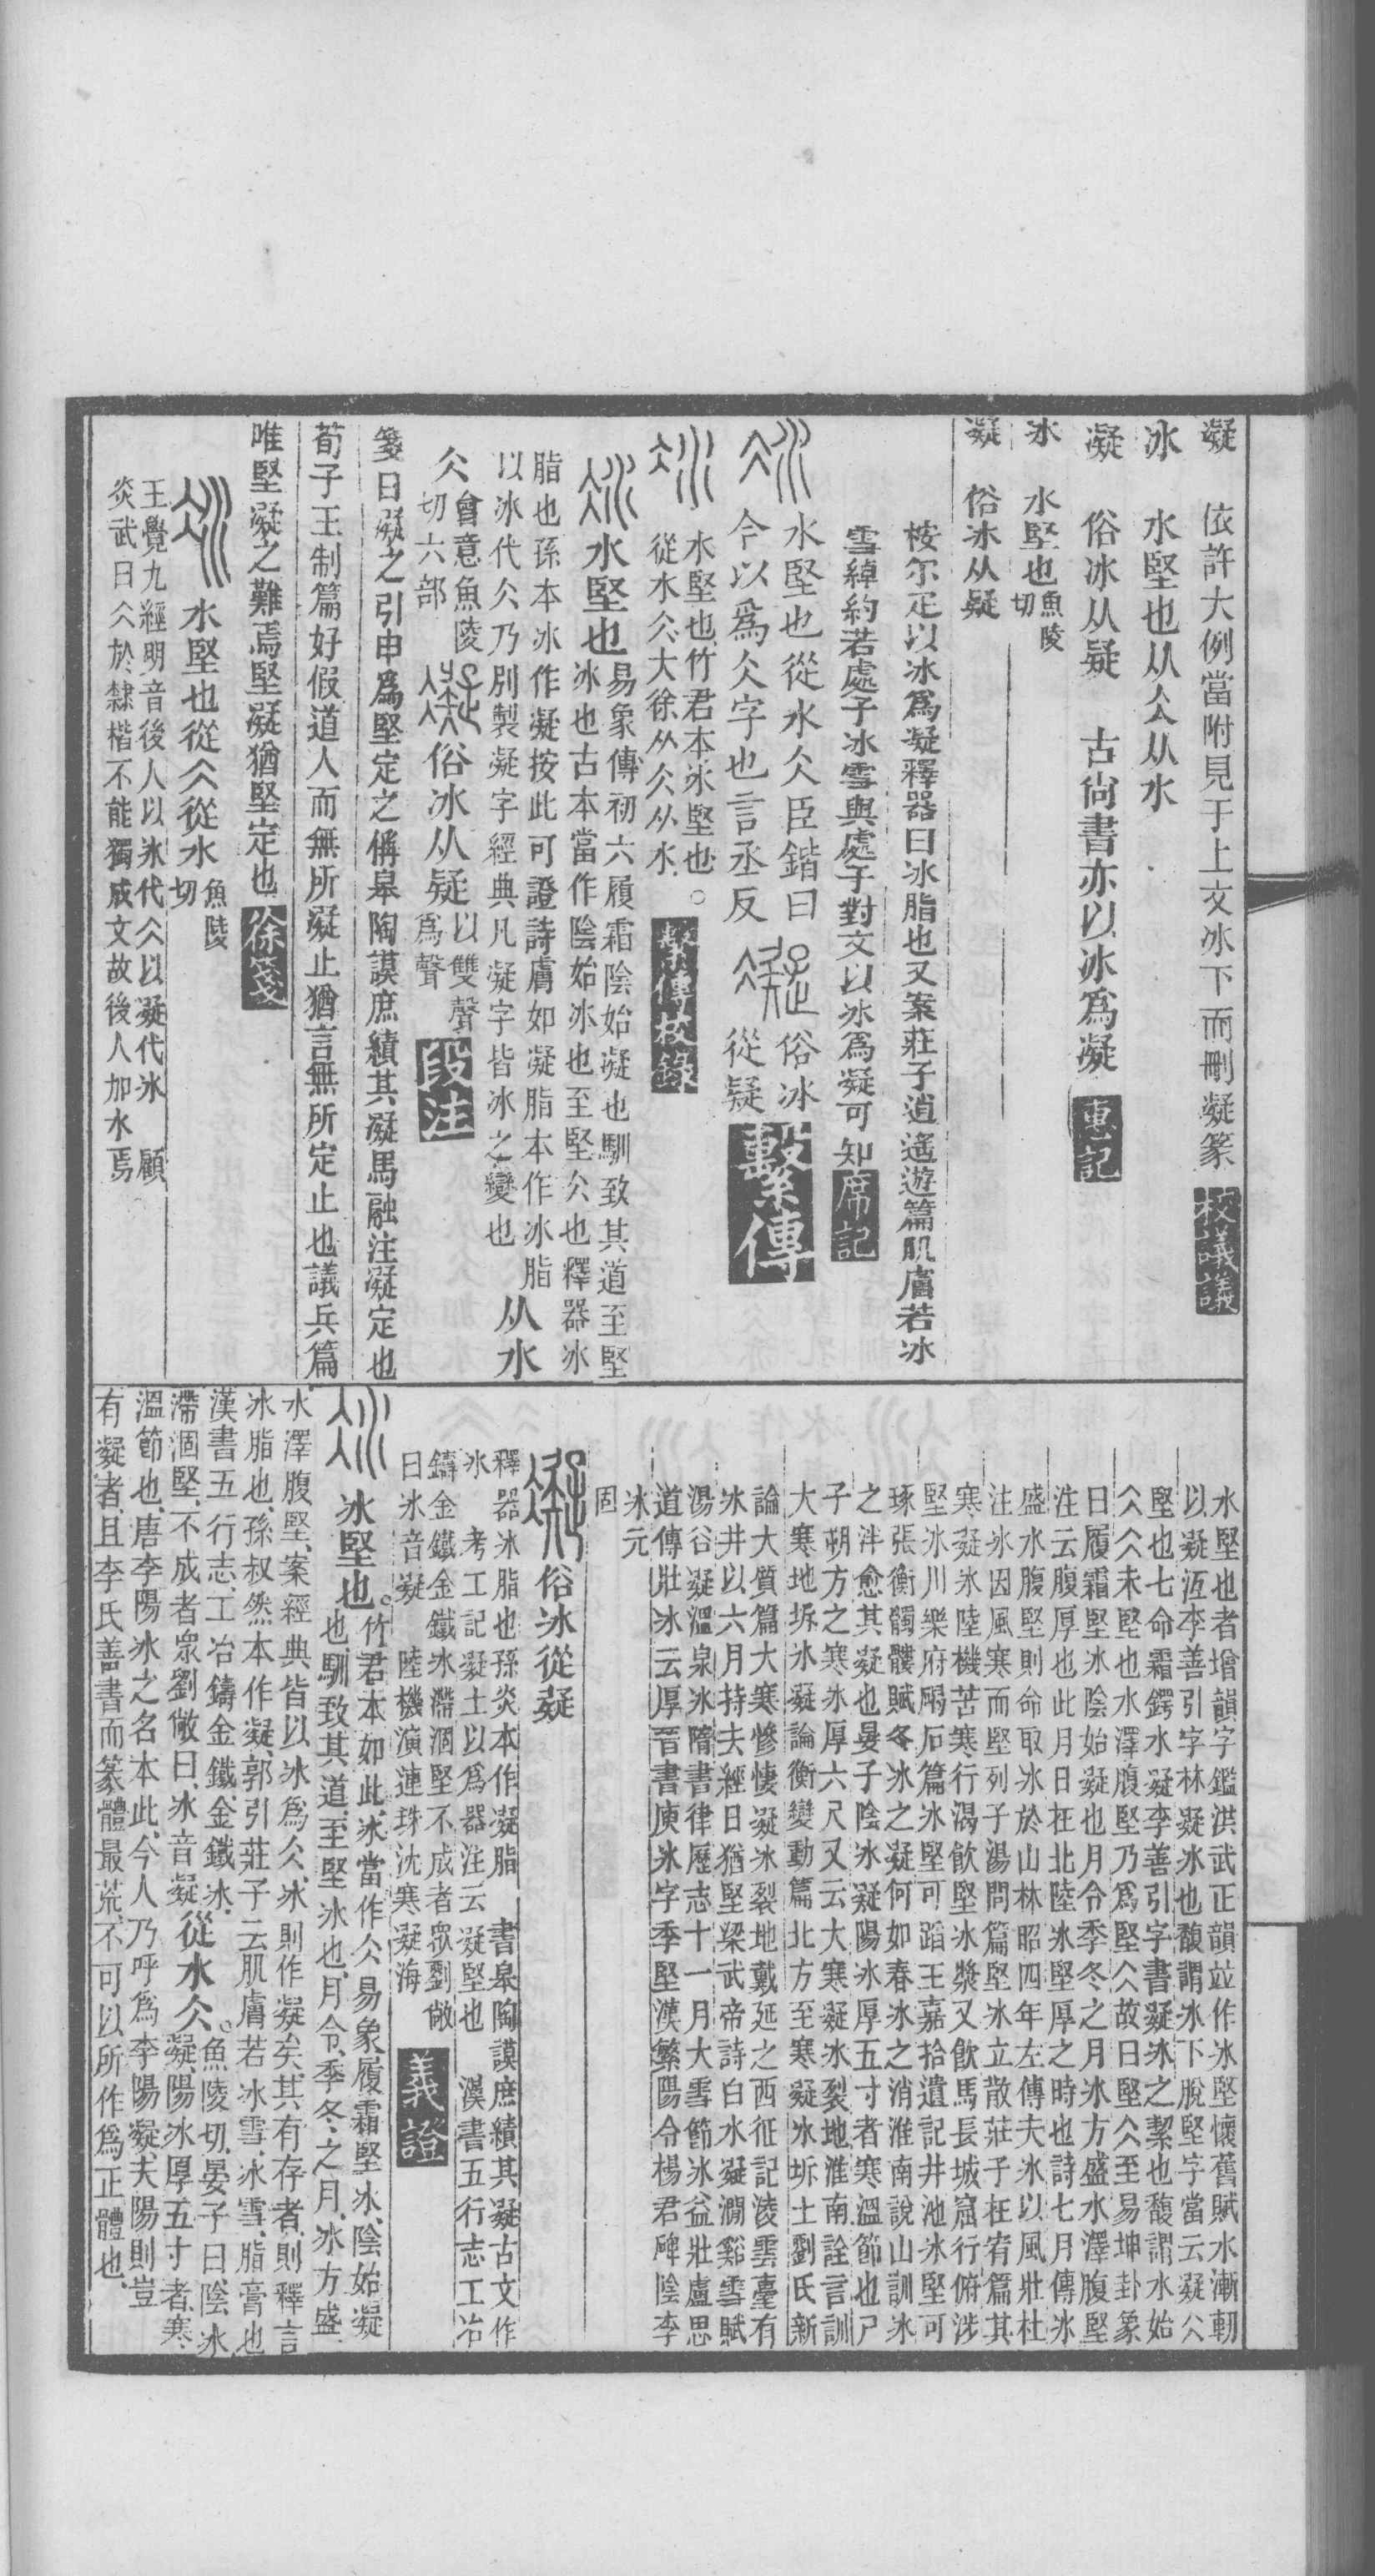 凝 依許大例當附見于上文冰下而刪凝篆 校議議
冰 水堅也从仌从水
凝 俗冰从疑 古尙書亦以冰爲凝 惠記
冰 水堅也魚陵切
凝 俗冰从疑
桉尒疋以冰爲凝釋器曰冰脂也又案莊子逍遙遊篇肌膚若冰
雪綽約若處子冰雪與處子對文以冰爲凝可知 席記
水堅也從水仌臣鍇曰
今以爲仌字也言丞反
俗冰
從疑 繫傳
水堅也竹君本冰堅也。
從水仌大徐从仌从水 繫傳校錄
水堅也 易象傳初六履霜陰始凝也馴致其道至堅
冰也古本當作陰始冰也至堅仌也釋器冰
脂也孫本冰作凝按此可證詩膚如凝脂本作冰脂 从水
以冰代仌乃別製凝字經典凡凝字皆冰之變也
仌 會意魚陵
切六部
俗冰从疑 以雙聲
爲聲 段注
箋曰凝之引申爲堅定之偁皋陶謨庶績其凝馬融注凝定也
荀子王制篇好假道人而無所凝止猶言無所定止也議兵篇
唯堅凝之難焉堅凝猶堅定也 徐箋
水堅也從仌從水 魚陵
切
王覺九經明音後人以冰代仌以凝代冰 顧
炎武曰仌於隸楷不能獨成文故後人加水焉
水堅也者增韻字鑑洪武正韻竝作冰堅懷舊賦水漸軔
以凝沍李善引字林凝冰也馥謂冰下脫堅字當云凝仌
堅也七命霜鍔水凝李善引字書凝冰之絜也馥謂水始
仌仌未堅也水澤腹堅乃爲堅仌故曰堅仌至易坤卦象
曰履霜堅冰陰始凝也月令季冬之月冰方盛水澤腹堅
注云腹厚也此月日在北陸冰堅厚之時也詩七月傳冰
盛水腹堅則命取冰於山林昭四年左傳夫冰以風壯杜
注冰因風寒而堅列子湯問篇堅冰立散莊子在宥篇其
寒凝冰陸機苦寒行渴飮堅冰漿又飮馬長城窟行俯涉
堅冰川樂府碣石篇冰堅可蹈王嘉拾遺記井池冰堅可
琢張衡髑髏賦冬冰之凝何如春冰之消淮南說山訓冰
之泮愈其凝也晏子陰冰凝陽冰厚五寸者寒溫節也尸
子朔方之寒冰厚六尺又云大寒凝冰裂地淮南詮言訓
大寒地坼冰凝論衡變動篇北方至寒凝冰坼土劉氏新
論大質篇大寒慘悽凝冰裂地戴延之西征記淩雲臺有
冰井以六月持夫經日猶堅梁武帝詩白水凝澗谿雪賦
湯谷凝溫泉冰隋書律歷志十一月大雪節冰益壯盧思
道傳壯冰云厚晉書庾冰字季堅漢繁陽令楊君碑陰李
冰元
固
俗冰從疑
釋器冰脂也孫炎本作凝脂 書皋陶謨庶績其凝古文作
冰 考工記凝土以爲器注云凝堅也 漢書五行志工冶
鑄金鐵金鐵冰滯涸堅不成者眾劉敞
曰冰音凝 陸機演連珠沈寒凝海 義證
水堅也。竹君本如此、冰當作仌、易象履霜堅冰、陰始凝
也、馴致其道、至堅冰也、月令、季冬之月、冰方盛
水澤腹堅、案經典皆以冰爲仌、冰則作凝矣、其有存者、則釋言
冰脂也、孫叔然本作凝、郭引莊子云肌膚若冰雪、冰雪、脂膏也
漢書五行志、工冶鑄金鐵、金鐵冰、
滯涸堅、不成者眾劉敞曰、冰音凝 從水仌。魚陵切、晏子曰陰冰
凝、陽冰厚五寸者、寒
溫節也、唐李陽冰之名本此、今人乃呼爲李陽凝、夫陽則豈
有凝者、且李氏善書而篆體最荒、不可以所作爲正體也、